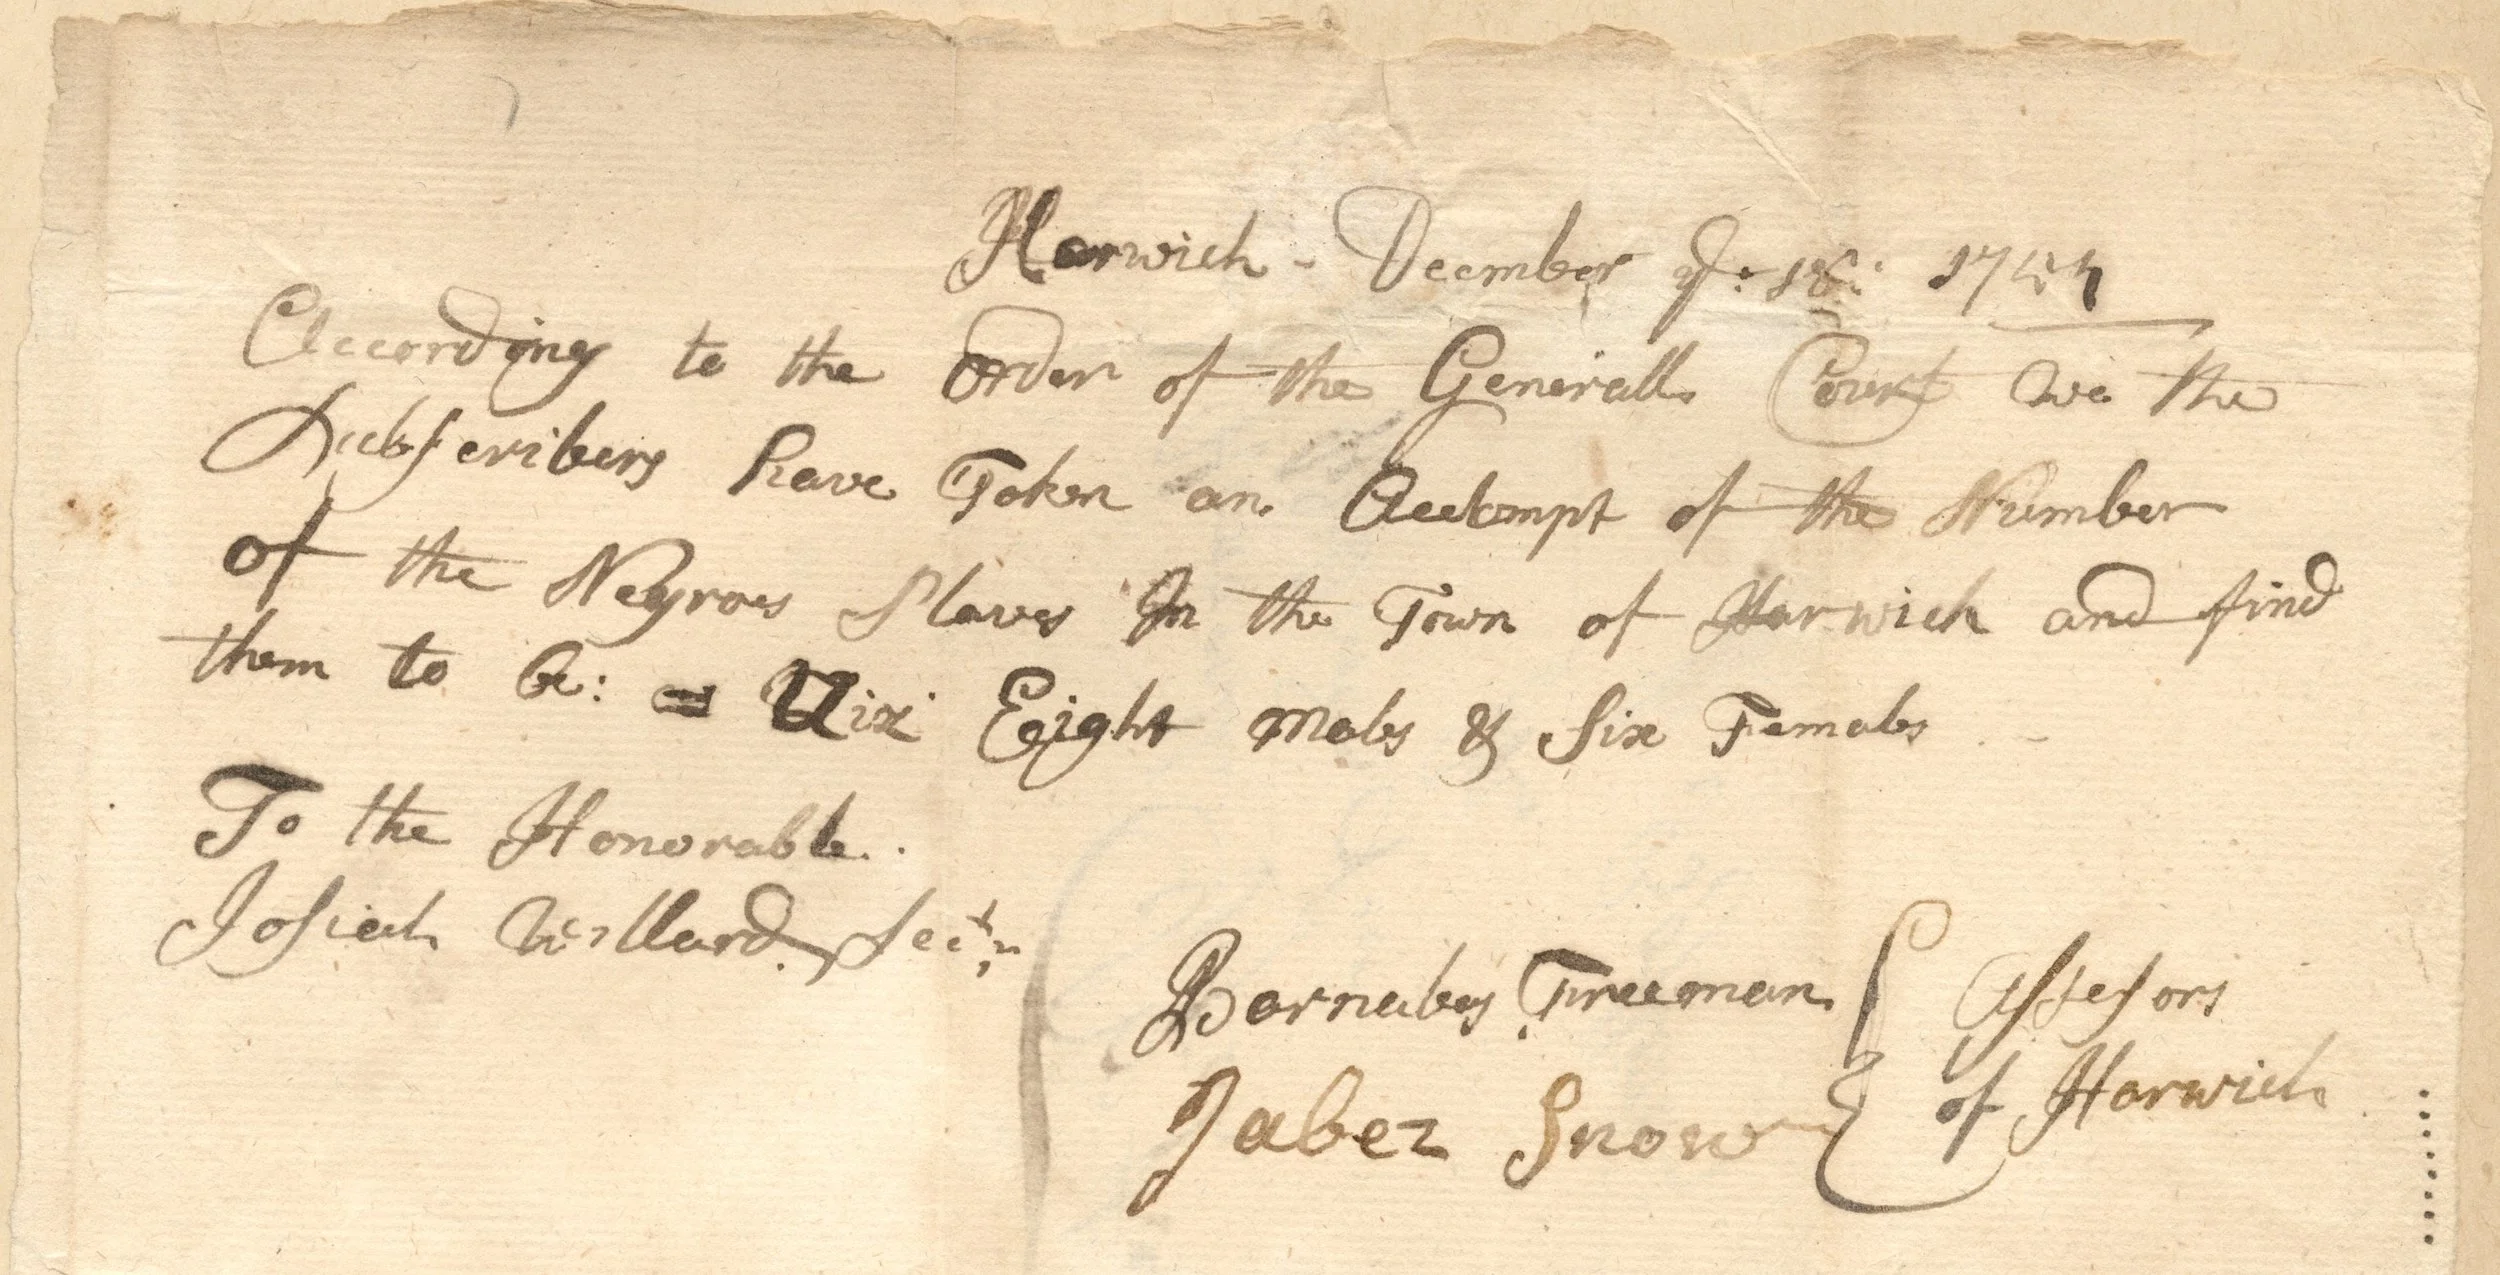 Harwich - December ye: 18: 1754
According to the order of the Generall Court we the
Subscribers have Taken an Acctompt of the Number
of the Negroes Slaves In the Town of Harwich and find
them to be: = Eight males & Six Females
To the Honorable.
Josiah Willard Secty
Barnabas Freeman Assesors
Jabez Snow of Harwich